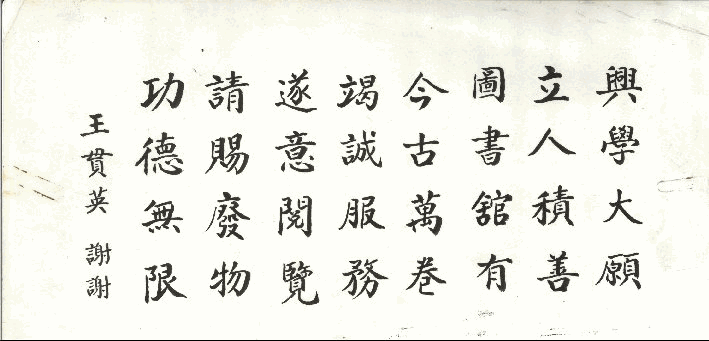 興學大願
立人積善
圖書舘有
今古萬卷
竭誠服務
遂意閱覽
請賜廢物
功德無限
王貫英 謝謝